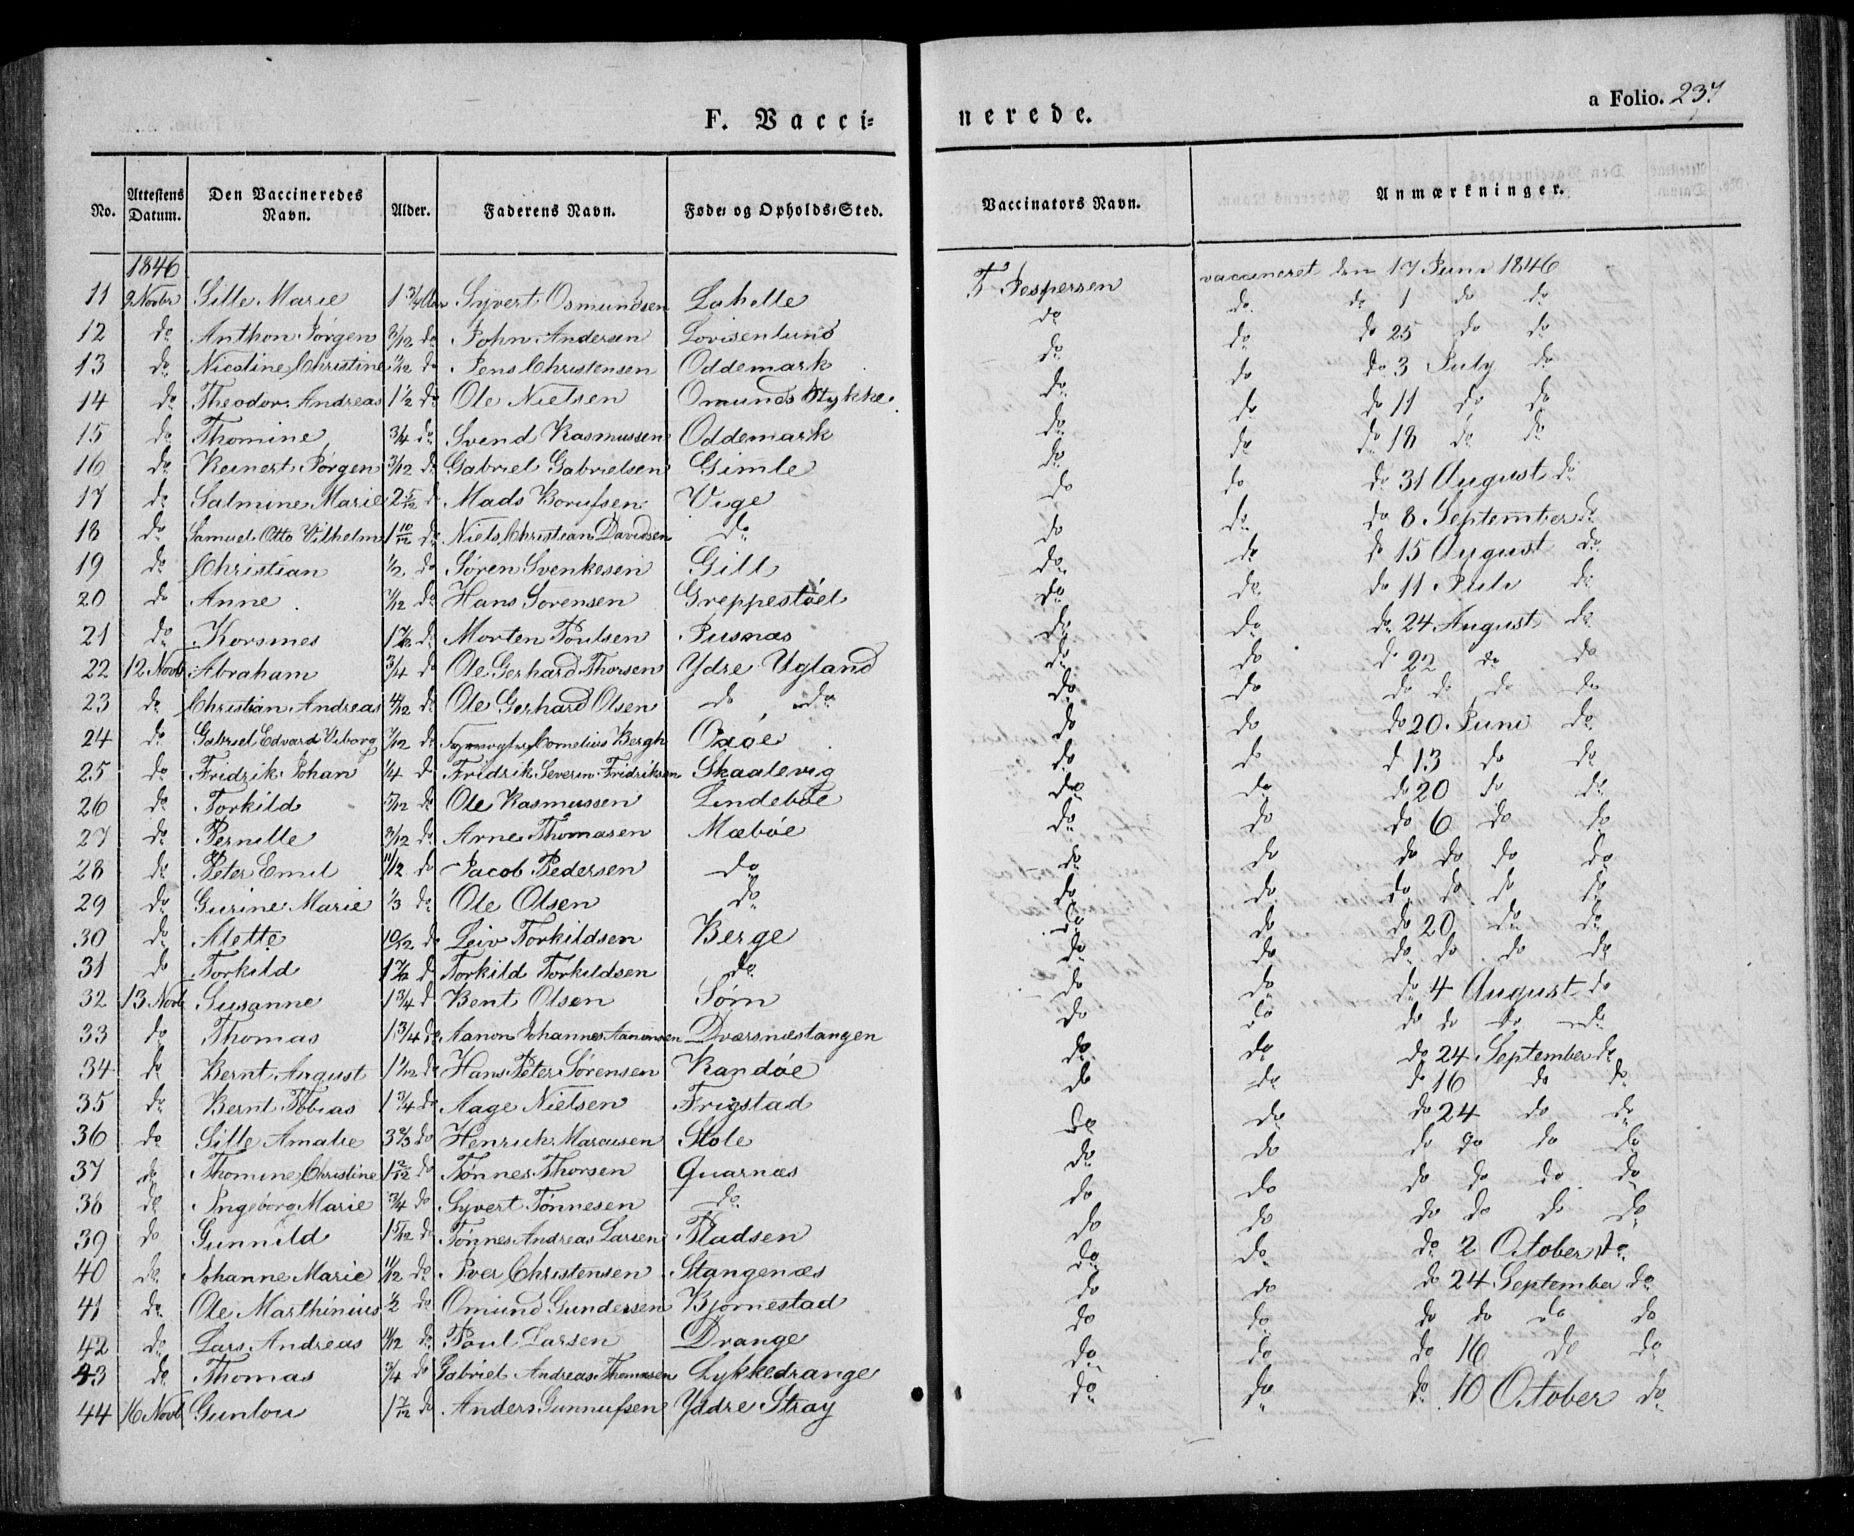 a Folio. 237
F. Vacci- nerede.
No. Attestens Datum. Den Vaccineredes Navn. Alder. Faderens Navn. Føde- og Opholds-Sted. Vaccinators Navn. Anmærkninger.
1846
11 9 Novbr Sille Marie 1 3/4 Aar Syvert Osmundsen Lahelle F Jespersen vaccineret den 17 Juni 1846
12 do Anthon Jørgen 3/12 do John Andersen Lovisenlund do do do 1 do do
13 do Nicoline Christine 1/12 do Jens Christensen Oddemark do do do 25 do do
14 do Theodor Andreas 1 1/2 do Ole Nielsen Omunds Stykke do do do 3 July do
15 do Thomine 3/4 do Svend Rasmussen Oddemark do do do 11 do do
16 do Reinert Jørgen 3/12 do Gabriel Gabrielsen Gimle do do do 18 do do
17 do Salmine Marie 2 5/12 d Mads Borufsen Vige do do do 31 August do
18 do Samuel Otto Vilhelm 1 10/12 do Niels Christian Davidsen do do do do 8 September do
19 do Christian 1/2 do Søren Svenkesen Gill do do do 15 August do
20 do Anne 7/12 do Hans Sørensen Greppestøel do do do 11 Juli do
21 do Korsmes 1 do Morten Poulsen Jusnæs do do do 24 August do
22 12 Novb Abraham 3/4 do Ole Gerhard Thorsen Ydre Ugland do do d 22 do do
23 do Christian Andreas 4/12 do Ole Gerhard Olsen do do do do do do do do
24 do Gabriel Edvard Viborg 7/12 do Cornelius Bergh Oxøe do do do 20 Juni do
25 do Fridrik Johan 1/4 d Fridrik Severin Fridriksen Skaalevig do do d 13 do do
26 do Torkild 5/12 do Ole Rasmussen Lindebøe do do do 20 do do
27 do Pernille 3/12 do Arne Thomasen Mæbøe do do do 6 do do
28 do Peter Emil 11/12 do Jacob Pedersen do do do do do do do
29 do Gurine Marie 1/3 do Ole Olsen do do do do do do do
30 do Alette 10/12 do Leiv Torkildsen Berge do do do 20 do do
31 do Torkild 1 d Torkild Torkildsen do do do do do do do
32 13 Novb Susanne 1 3/4 d Bent Olsen Søm do do do 4 August do
33 do Thomas 1 3/4 do Aanon Johannes Aanonsen Dværsnestangen do do do do do do
34 do Bernt August 1 1/12 do Hans Peter Sørensen Randøe do do do 24 September do
35 do Bernt Tobias 1 3/4 do Aage Nielsen Frigstad do do do 16 do do
36 do Sille Amalie 3 2/3 do Henrich Marcusen Stole do do do 24 do do
37 do Thomine Christine 1 2/12 do Tønnes Thorsen Quarnæs do do do do do do
38 do Ingeborg Marie 3/4 do Syvert Tønnesen do do do do do do do
39 do Gunnild 1 5/12 do Tønnes Andreas Larsen Pladsen do do do do do do
40 do Johanne Marie 11/12 do Iver Christensen Stangenæs do do do 2 October do
41 do Ole Marthinius 1/2 do Omund Gundersen Bjørnestad do do do 24 September do
42 do Lars Andreas 11/12 do Poul Larsen Drange do do do do do do
43 do Thomas 3/4 do Gabriel Andreas Thomasen Lykkedrange do do do 16 do do
44 16 Novb Gunlou 1 7/12 do Anders Gunnufsen Yddre Stray do do do 10 October do